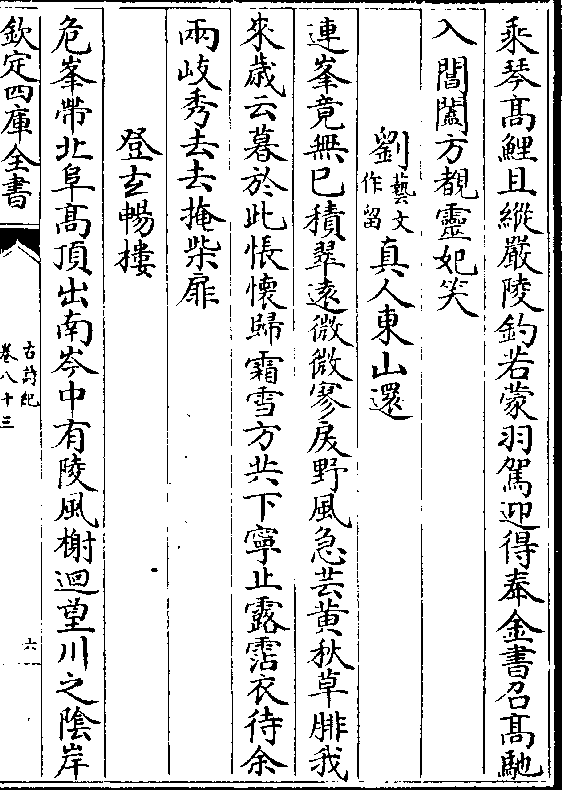 乘琴高鯉且縱嚴陵釣若蒙羽駕迎得奉金書召高馳
入閶闔方覩靈妃笑
劉藝文作留真人東山還
連峯竟無已積翠遠微微寥戾野風急芸黄秋草腓我
來歲云暮於此悵懷歸霜雪方共下寧止露霑衣待余
兩岐秀去去掩柴扉
登玄暢樓
危峯帶北阜高頂出南岑中有陵風榭迴望川之陰岸
欽定四庫全書
古詩紀
卷八十三
六